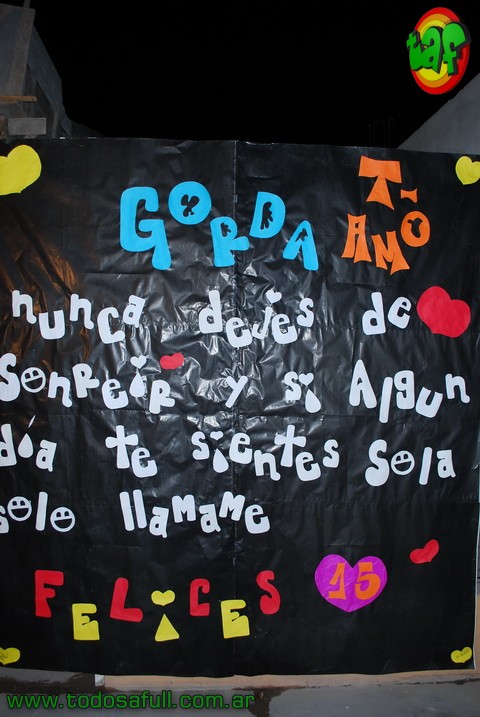 taf
GORDA T-
AMO
nunca dejes de
SonReiR y si Algun
día te sientes Sola
solo llamame
FELiCES 15
www.todosafull.com.ar